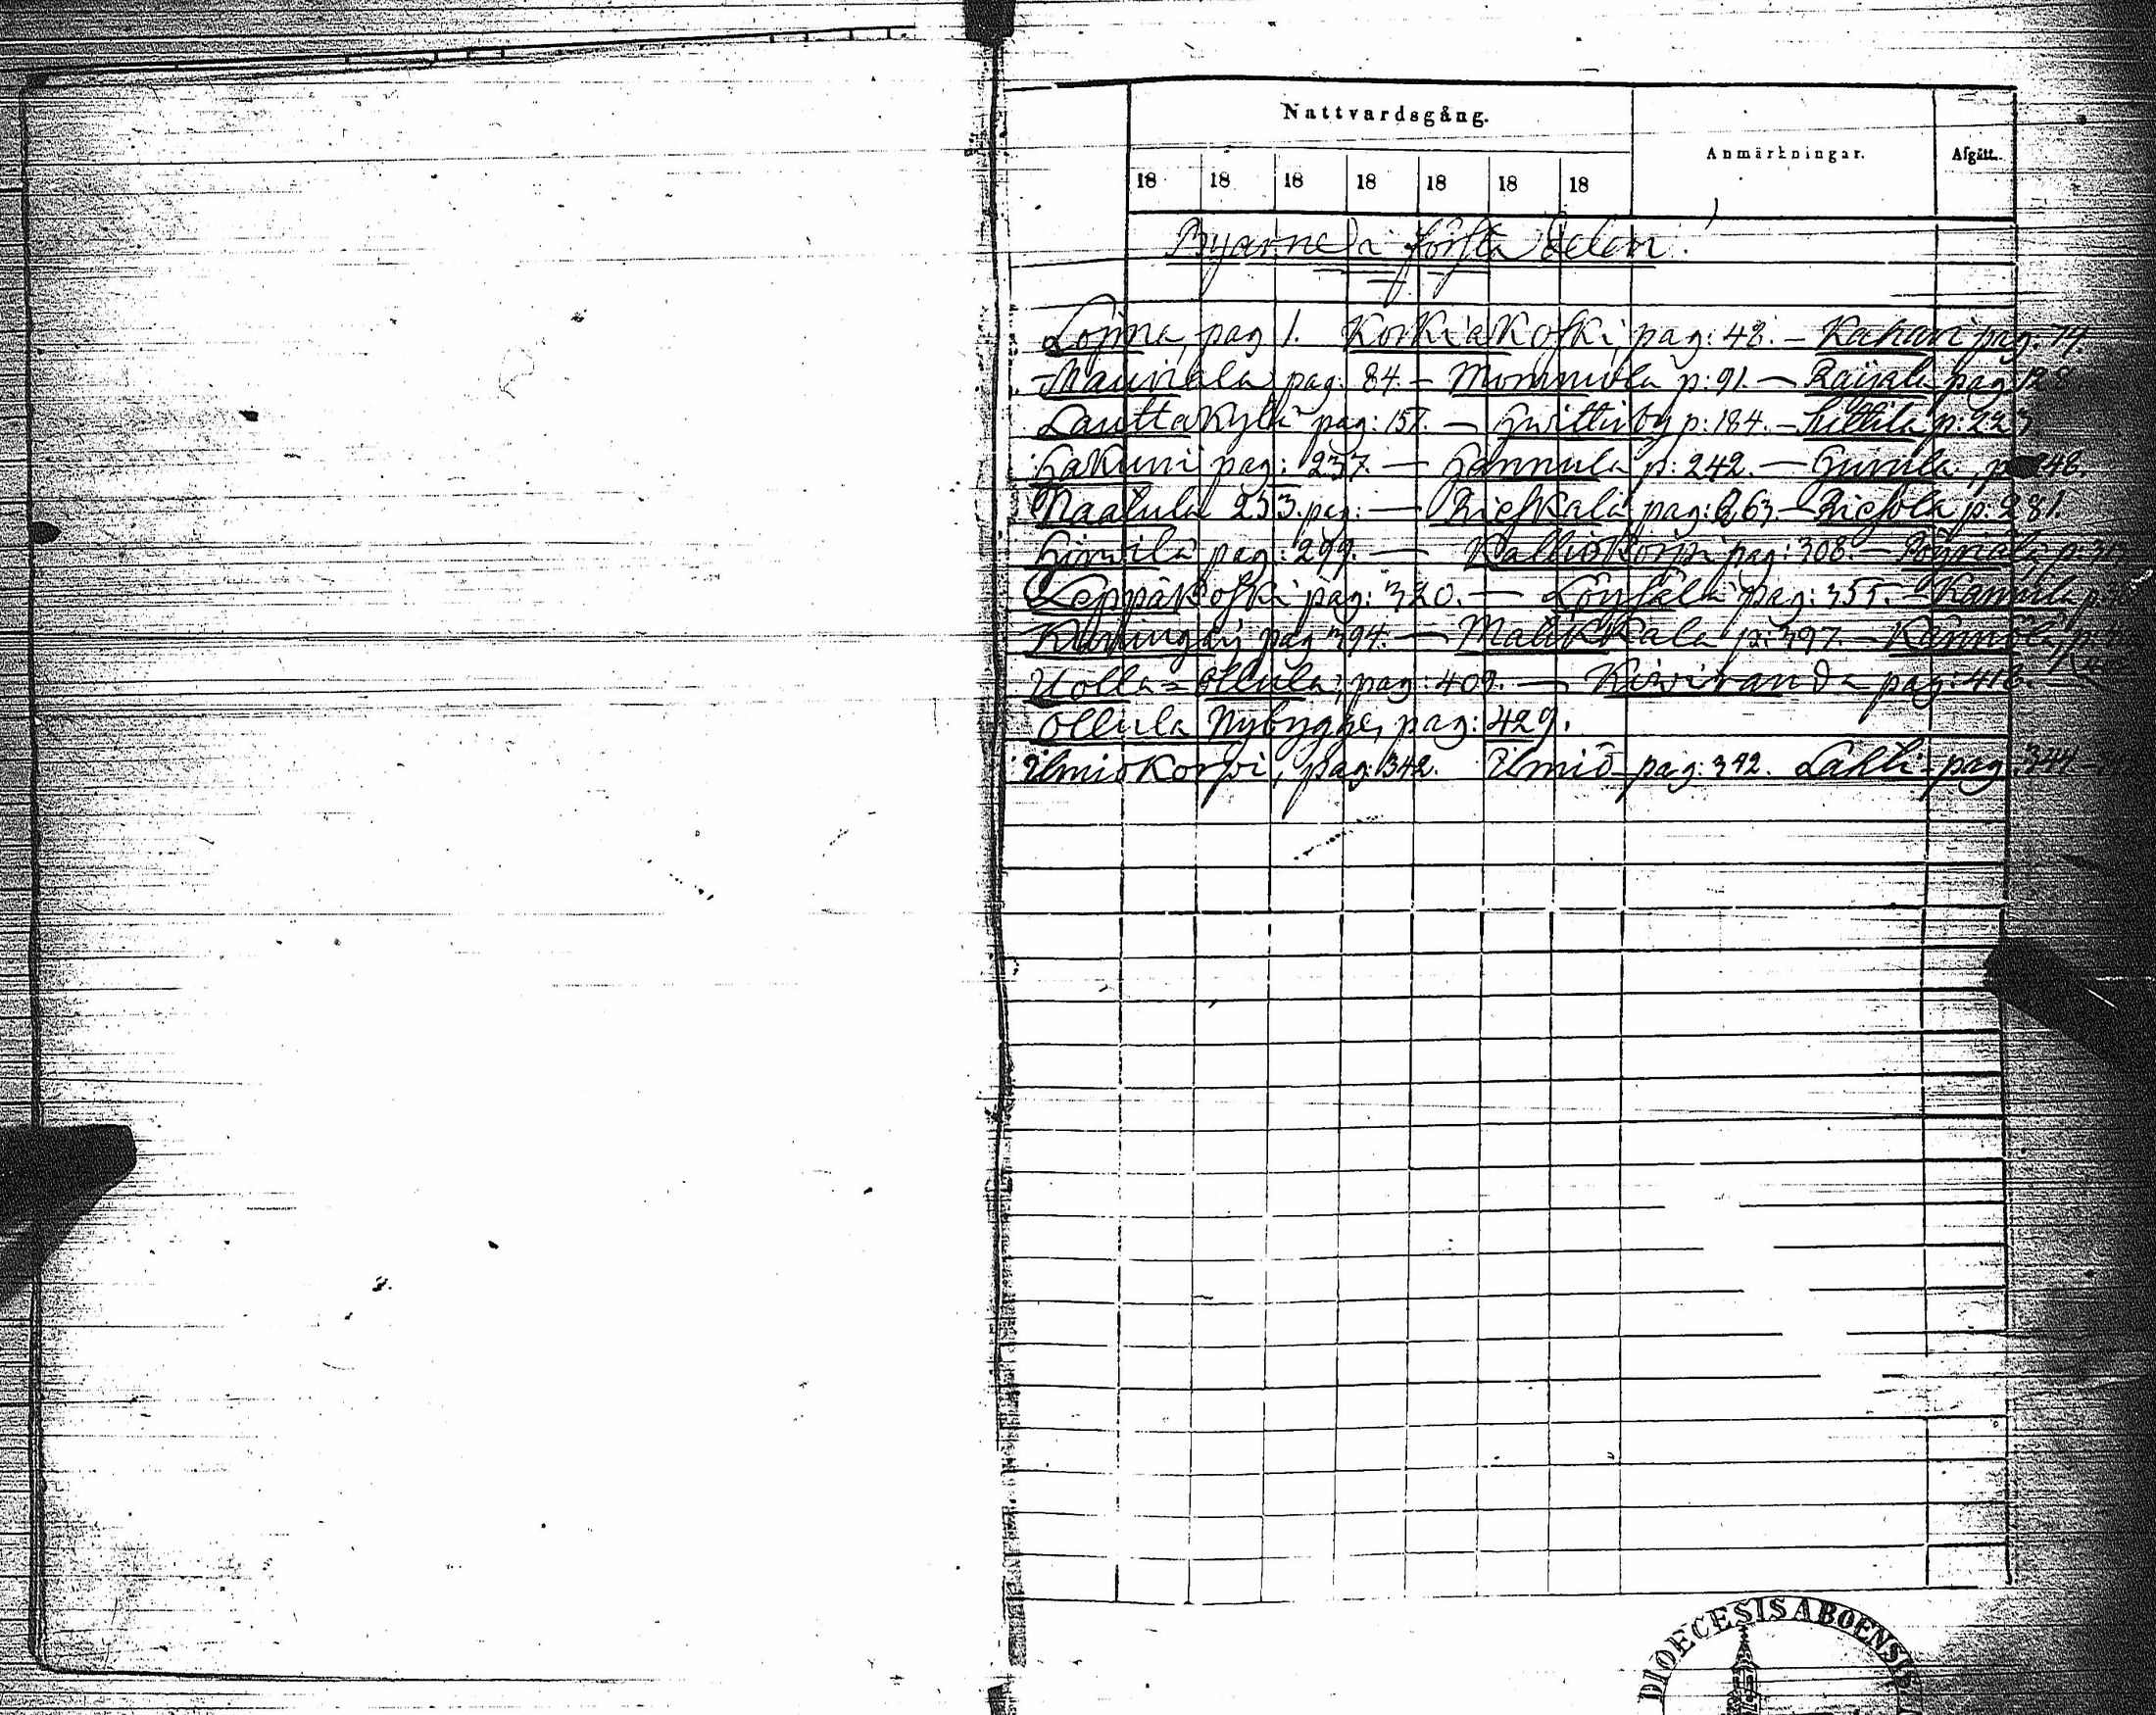 Nattvardsgång.
Anmärkningar.
Afgått.
18 18 18 18 18 18 18
Byarne i första delen
Loima, pag 1. Korkiakoski pag: 48. – Kahari pag: 74.
Mauriala pag: 84. – Mommola p: 91. – Raijala pag 128.
Lauttakylä pag: 157. – Huittisby p: 184. – Sittila p: 223
Hakuni pag: 237. – Hannula p: 242. – Huvila, p 248.
Naatula 253. pag: – Rieskala pag: 263. – Riesola p: 281.
Hirvilä pag: 299. – Kalliokorpi pag: 308. – p: 31
Leppäkoski pag: 320. – pag: 355. – Kannila
pag 394. – Mahkkala p: 397. –
Uolla = Ollula, pag: 409. – Kiviranda pag: 416.
Ollula Nybygge, pag: 429.
Ilmiökorpi, pag: 342. Ilmiö pag: 392. Lähti pag: 344
DIOECESIS ABOENSIS